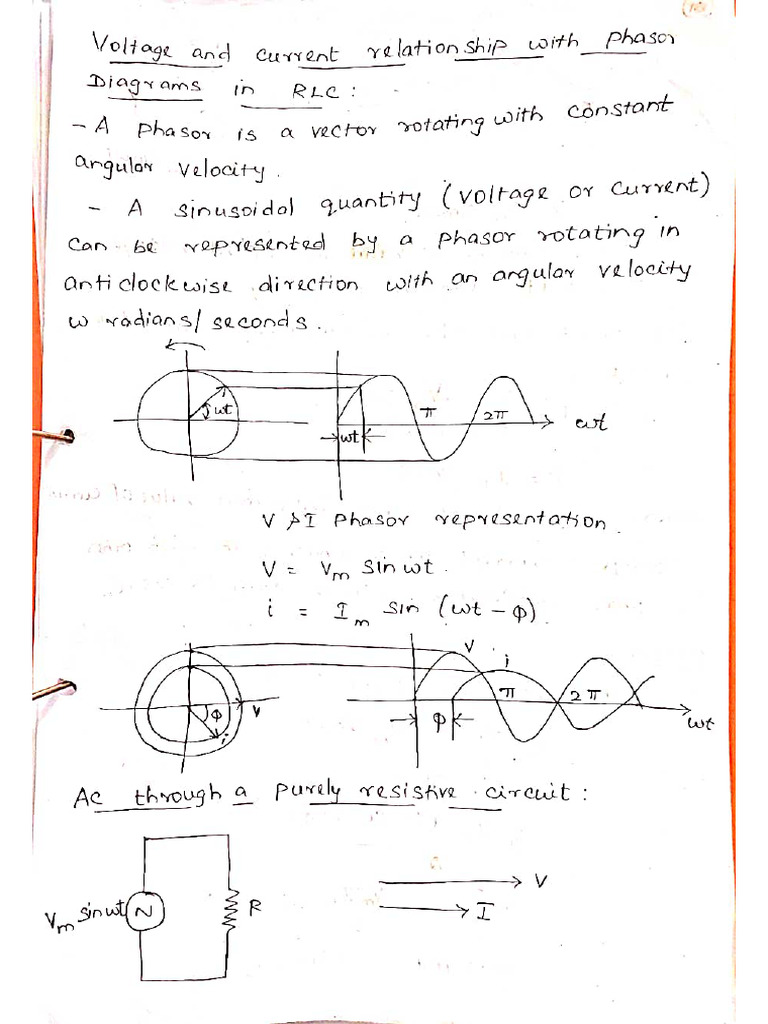 Voltage and current relationship with phasor
Diagrams in RLC :
- A phasor is a vector rotating with constant
angular velocity.
- A sinusoidal quantity (voltage or current)
can be represented by a phasor rotating in
anticlockwise direction with an angular velocity
w radians/seconds.
wt
wt
π
2π
wt
V & I phasor representation.
V = Vm sin wt.
i = Im sin (wt - φ).
φ
V
i
V
i
φ
π
2π
wt
Ac through a purely resistive circuit :
Vm sinwt
N
R
V
I